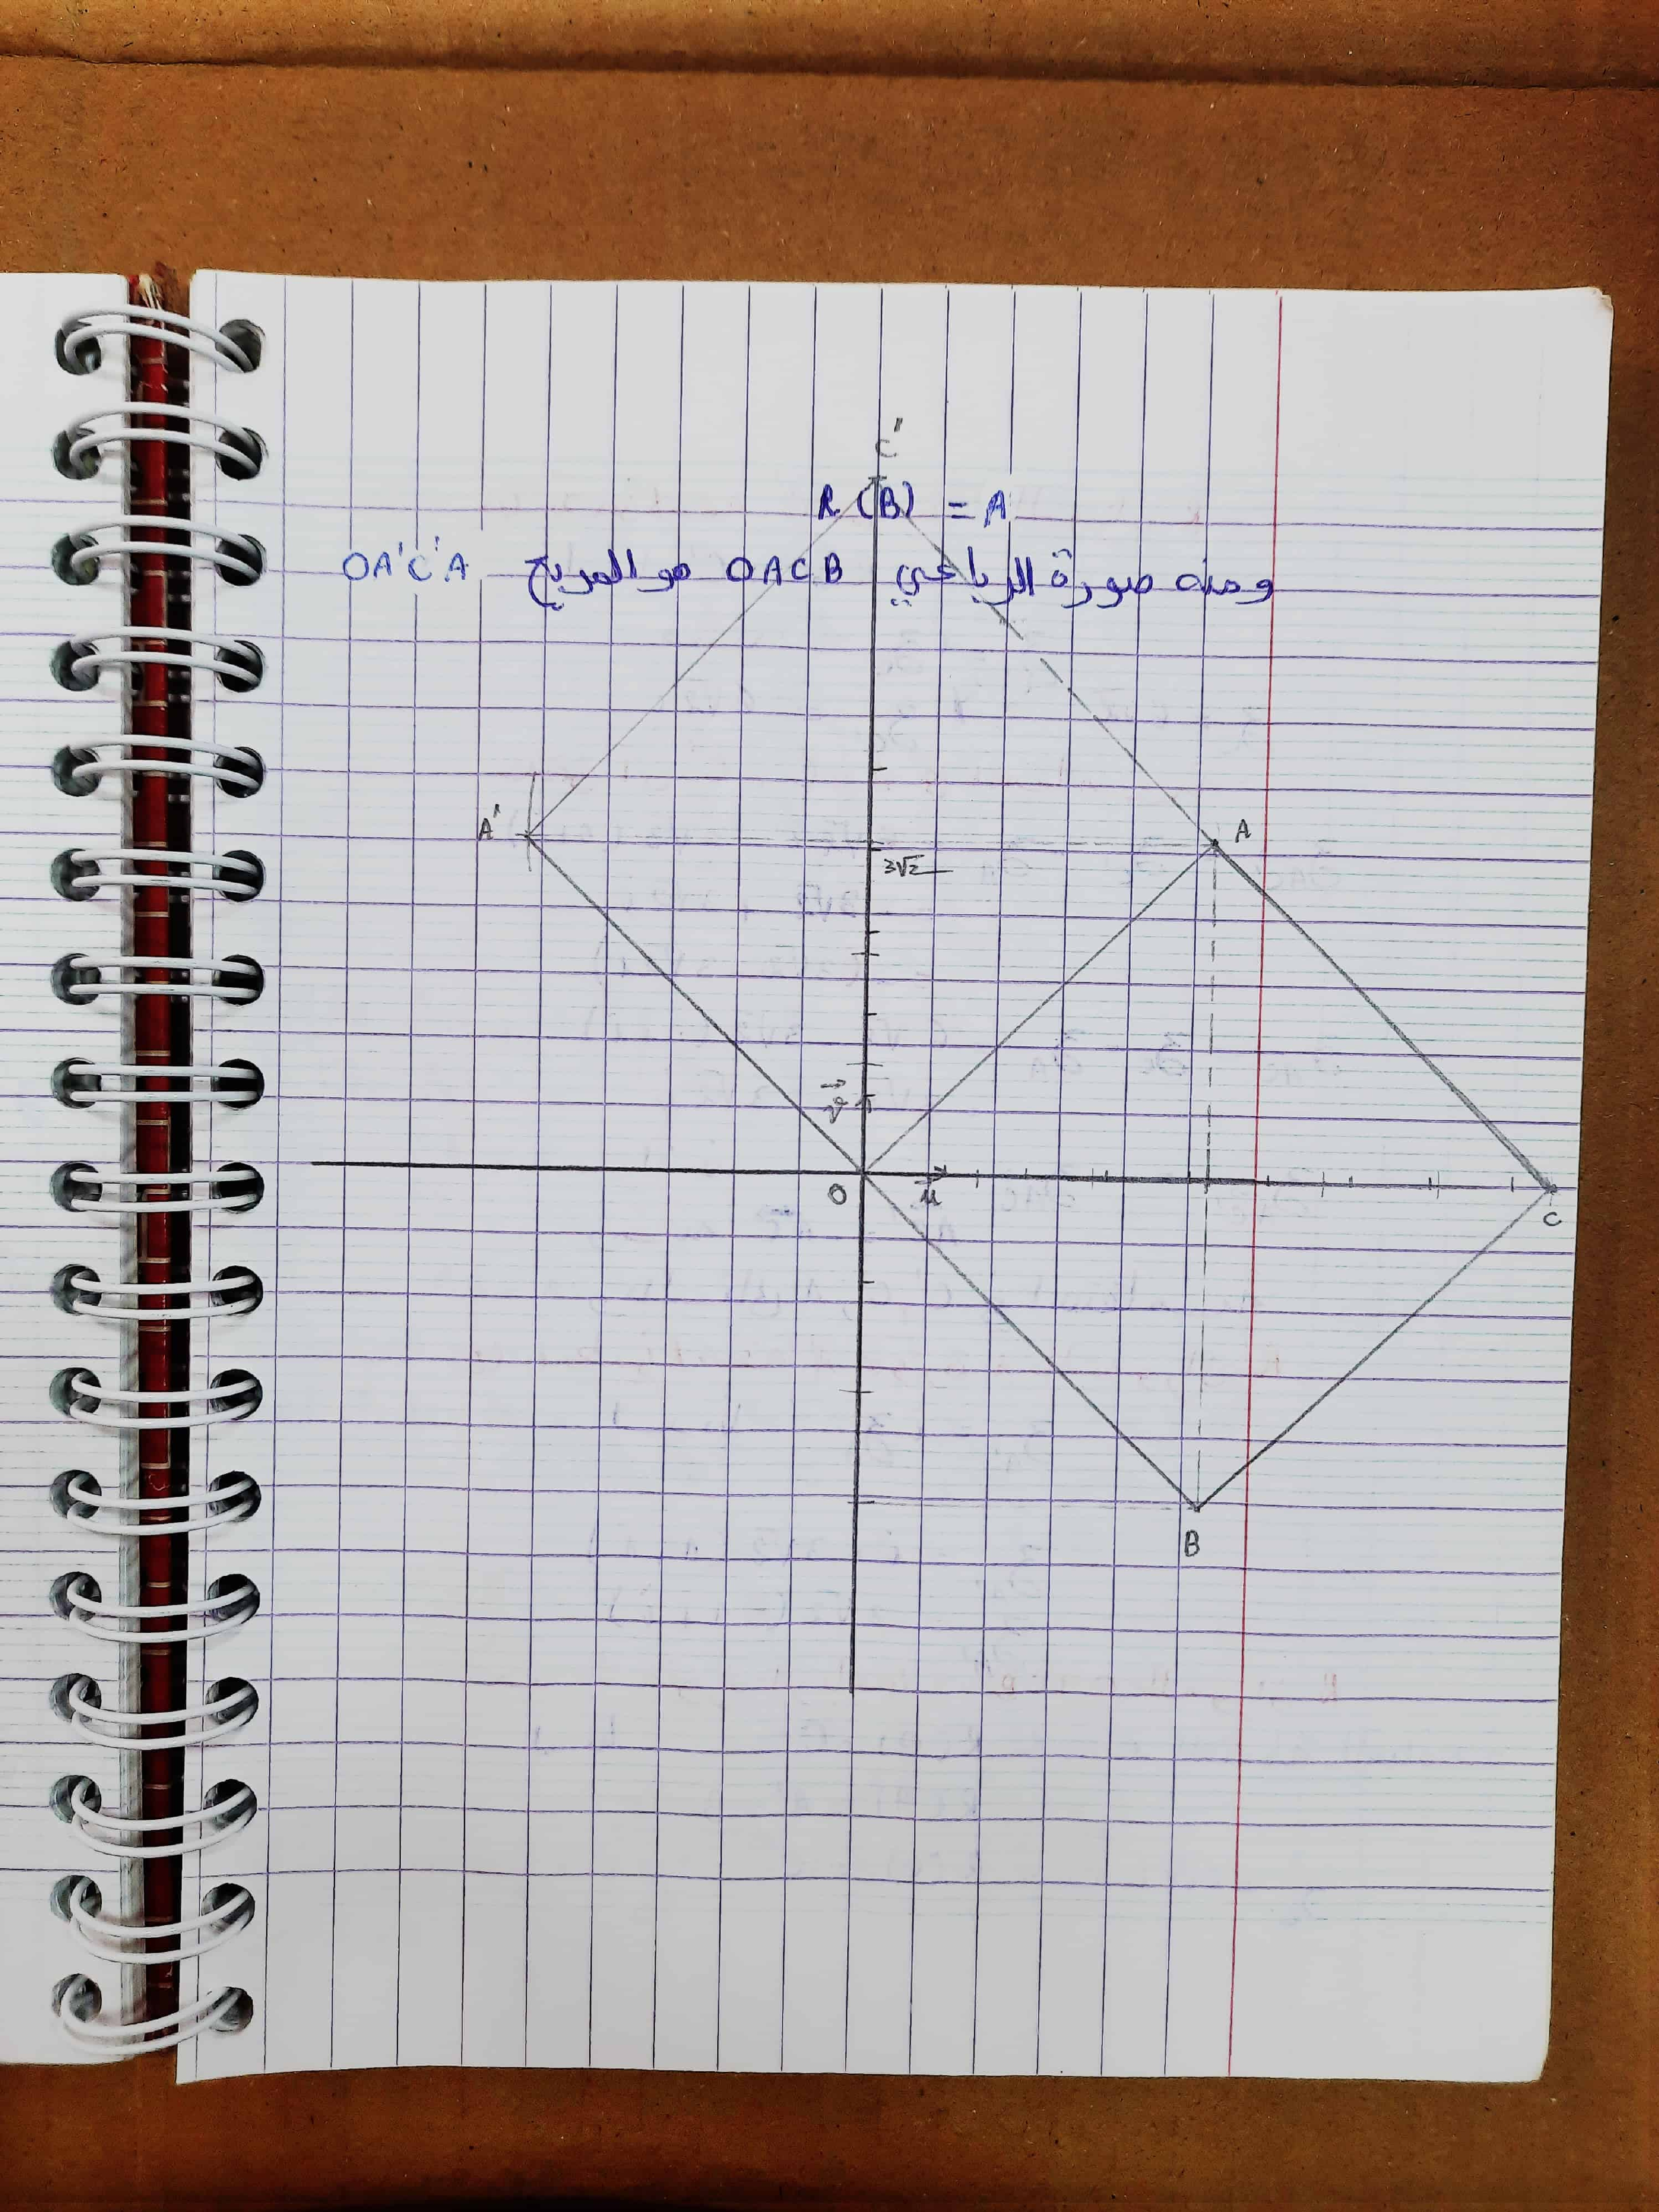 C'
R (B) = A
ومنه صورة الرباعي OACB هو المربع OA'C'A
A'
A
3√2
v
O
u
C
B